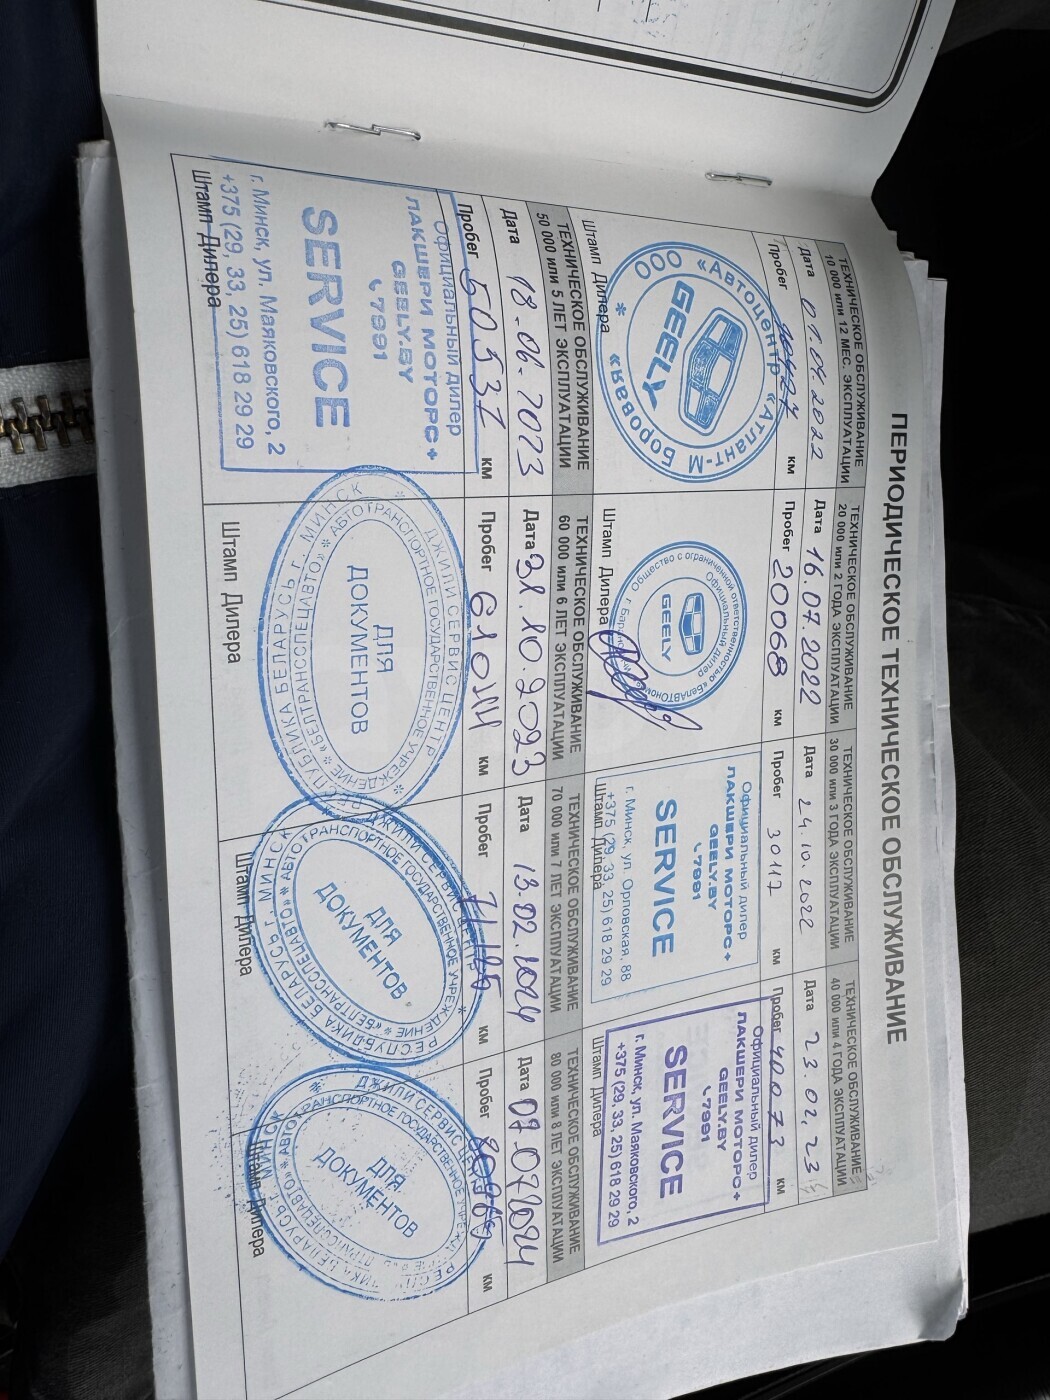 ПЕРИОДИЧЕСКОЕ ТЕХНИЧЕСКОЕ ОБСЛУЖИВАНИЕ
ТЕХНИЧЕСКОЕ ОБСЛУЖИВАНИЕ
10 000 или 12 МЕС. ЭКСПЛУАТАЦИИ
Дата 07.04.2022
Пробег км
ООО «Автоцентр «Атлант-М Боровая»
GEELY
Штамп Дилера
ТЕХНИЧЕСКОЕ ОБСЛУЖИВАНИЕ
20 000 или 2 ГОДА ЭКСПЛУАТАЦИИ
Дата 16.07.2022
Пробег 20068 км
Общество с ограниченной ответственностью
Официальный дилер
GEELY
Штамп Дилера
ТЕХНИЧЕСКОЕ ОБСЛУЖИВАНИЕ
30 000 или 3 ГОДА ЭКСПЛУАТАЦИИ
Дата 24.10.2022
Пробег 30117 км
Официальный дилер
ЛАКШЕРИ МОТОРС+
GEELY.BY
7991
SERVICE
г. Минск, ул. Орловская, 88
+375 (29, 33, 25) 618 29 29
Штамп Дилера
ТЕХНИЧЕСКОЕ ОБСЛУЖИВАНИЕ
40 000 или 4 ГОДА ЭКСПЛУАТАЦИИ
Дата 23.02.23
Пробег 40073 км
Официальный дилер
ЛАКШЕРИ МОТОРС+
GEELY.BY
7991
SERVICE
г. Минск, ул. Маяковского, 2
+375 (29, 33, 25) 618 29 29
Штамп Дилера
ТЕХНИЧЕСКОЕ ОБСЛУЖИВАНИЕ
50 000 или 5 ЛЕТ ЭКСПЛУАТАЦИИ
Дата 18.06.2023
Пробег 50537 км
Официальный дилер
ЛАКШЕРИ МОТОРС+
GEELY.BY
7991
SERVICE
г. Минск, ул. Маяковского, 2
+375 (29, 33, 25) 618 29 29
Штамп Дилера
ТЕХНИЧЕСКОЕ ОБСЛУЖИВАНИЕ
60 000 или 6 ЛЕТ ЭКСПЛУАТАЦИИ
Дата 31.10.2023
Пробег 61014 км
РЕСПУБЛИКА БЕЛАРУСЬ г. МИНСК
ДЖИЛИ СЕРВИС ЦЕНТР
АВТОТРАНСПОРТНОЕ ГОСУДАРСТВЕННОЕ УЧРЕЖДЕНИЕ «БЕЛТРАНССПЕЦАВТО»
ДЛЯ
ДОКУМЕНТОВ
Штамп Дилера
ТЕХНИЧЕСКОЕ ОБСЛУЖИВАНИЕ
70 000 или 7 ЛЕТ ЭКСПЛУАТАЦИИ
Дата 13.02.2024
Пробег 71125 км
РЕСПУБЛИКА БЕЛАРУСЬ г. МИНСК
ДЖИЛИ СЕРВИС ЦЕНТР
АВТОТРАНСПОРТНОЕ ГОСУДАРСТВЕННОЕ УЧРЕЖДЕНИЕ «БЕЛТРАНССПЕЦАВТО»
ДЛЯ
ДОКУМЕНТОВ
Штамп Дилера
ТЕХНИЧЕСКОЕ ОБСЛУЖИВАНИЕ
80 000 или 8 ЛЕТ ЭКСПЛУАТАЦИИ
Дата 07.07.2024
Пробег км
ДЖИЛИ СЕРВИС
ДЛЯ
ДОКУМЕНТОВ
Штамп Дилера